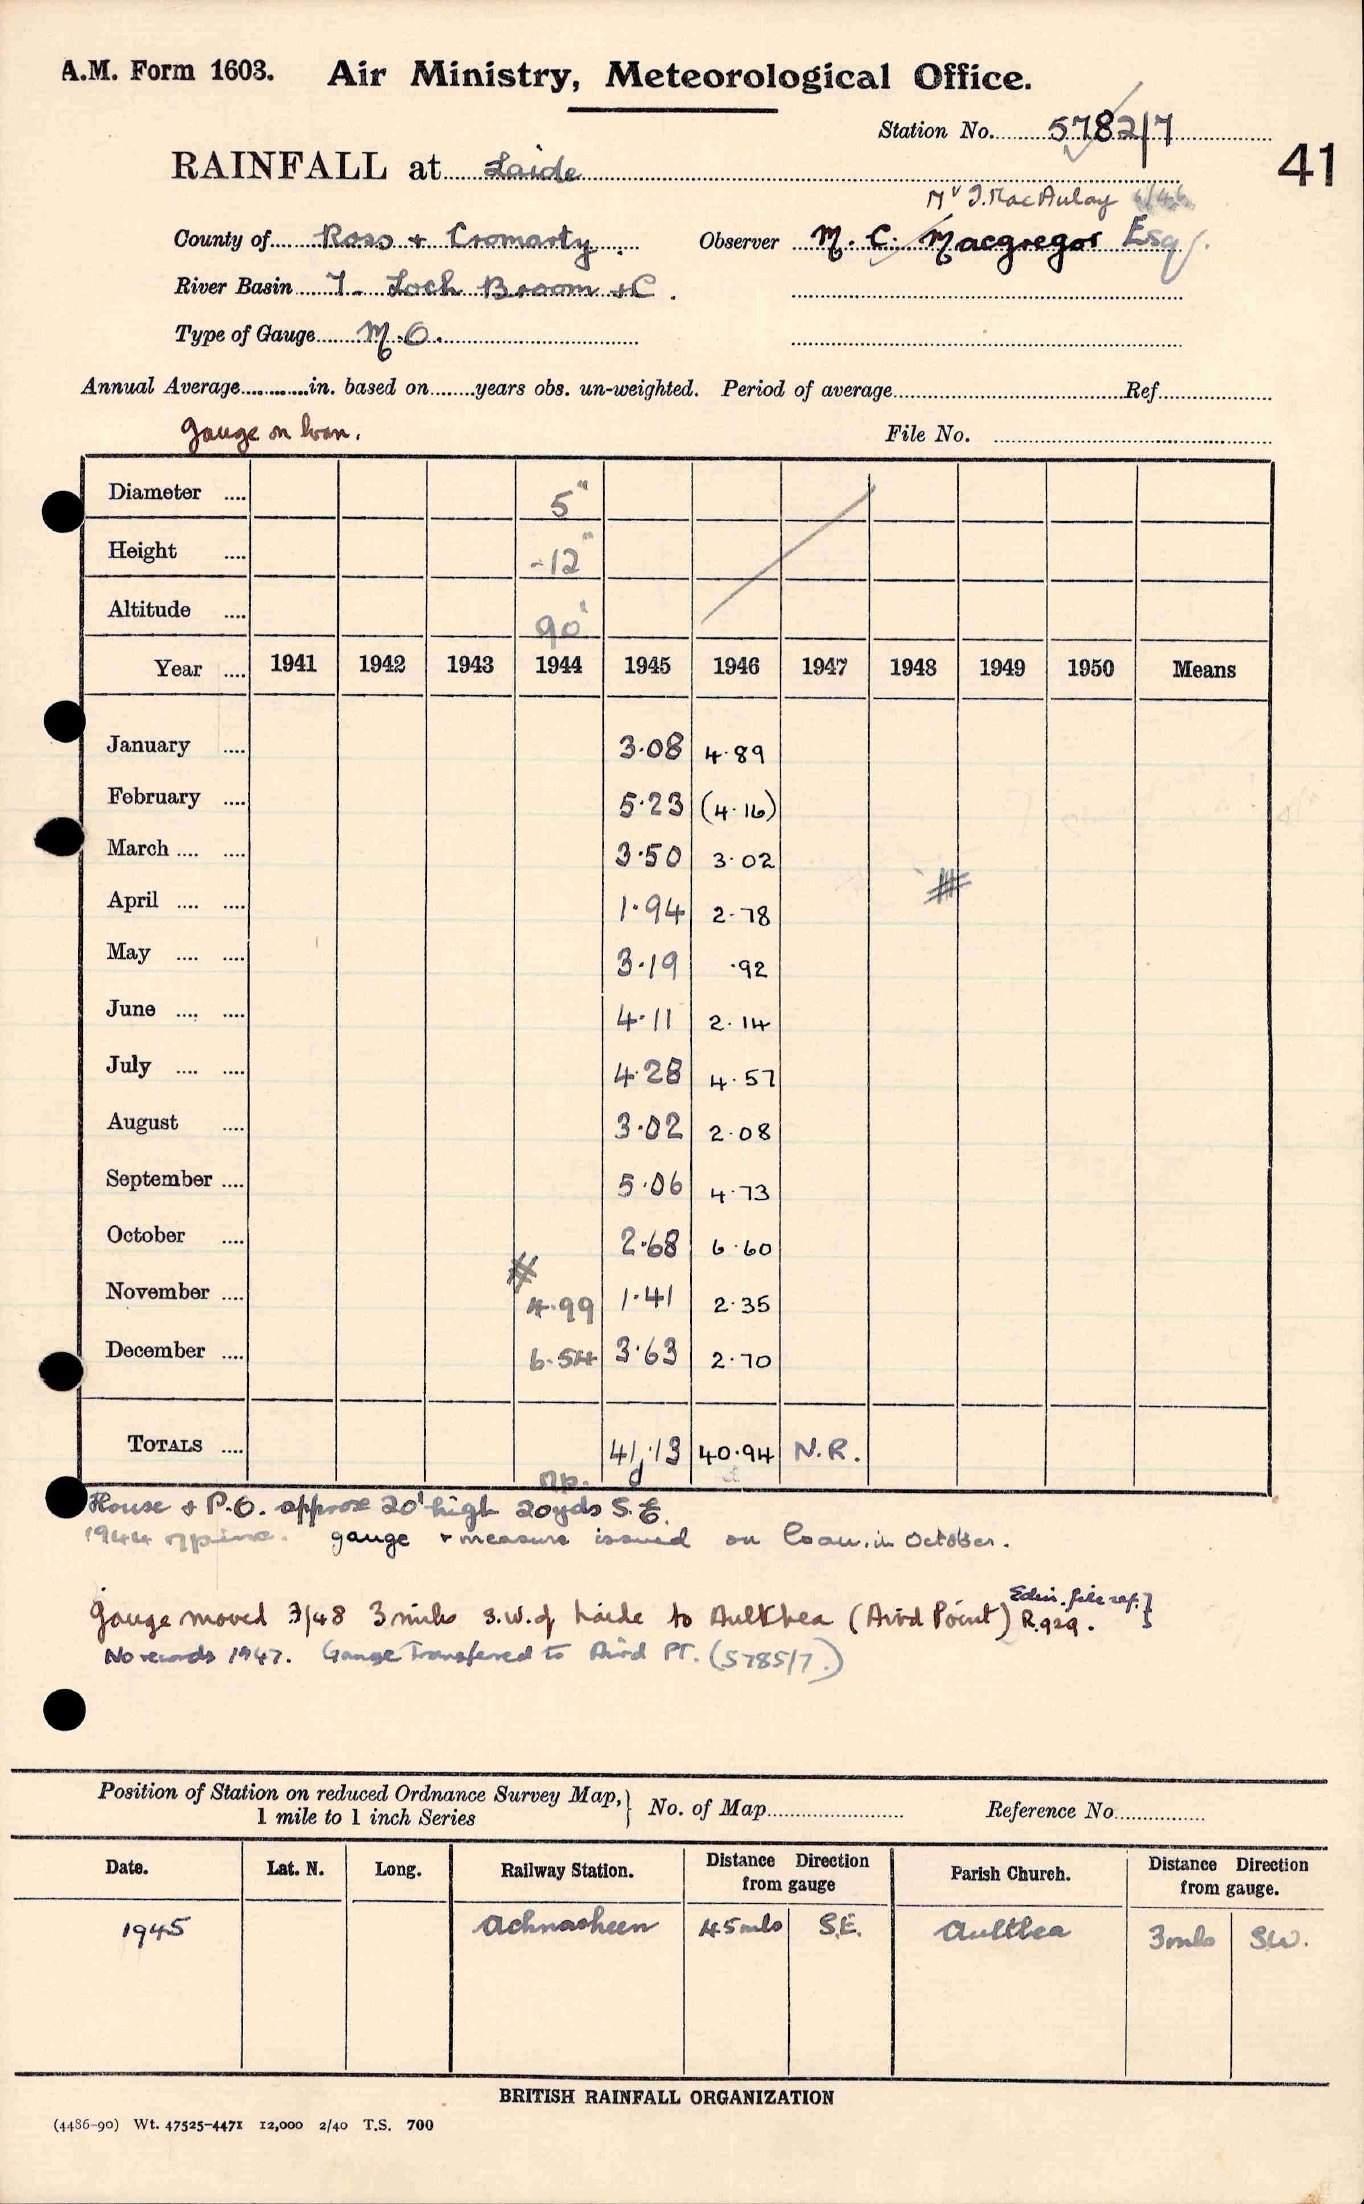 A.M. Form 1603. Air Ministry, Meteorological Office.
Station No. 5782/7
41
RAINFALL at Laide
Mr J. MacAulay
County of Ross + Cromarty. Observer M. C. Macgregor Esq.
River Basin 7. Loch Broom +C.
Type of Gauge M.O.
Annual Average in. based on years obs. un-weighted. Period of average Ref.
gauge on loan. File No.
Diameter 5"
Height -12"
Altitude 90'
Year 1941 1942 1943 1944 1945 1946 1947 1948 1949 1950 Means
January 3.08 4.89
February 5.23 (4.16)
March 3.50 3.02
April 1.94 2.78
May 3.19 .92
June 4.11 2.14
July 4.28 4.57
August 3.02 2.08
September 5.06 4.73
October 2.68 6.60
November 4.99 1.41 2.35
December 6.54 3.63 2.70
TOTALS 41.13 40.94 N.R.
np.
House & P.O. approx 20' high 20yds S.E.
1944 gauge + measure issued on loan in October.
Gauge moved 3/48 3 miles S.W. of Laide to Aultbea (Aird Point) Edin. file ref. R.929.
No records 1947. Gauge Transferred to Aird PT. (5785/7.)
Position of Station on reduced Ordnance Survey Map, 1 mile to 1 inch Series } No. of Map Reference No.
Date. Lat. N. Long. Railway Station. Distance Direction from gauge Parish Church. Distance Direction from gauge.
1945 Achnasheen 45mls S.E. Aultbea 3mls S.W.
BRITISH RAINFALL ORGANIZATION
(4486-90) Wt. 47525-4471 12,000 2/40 T.S. 700